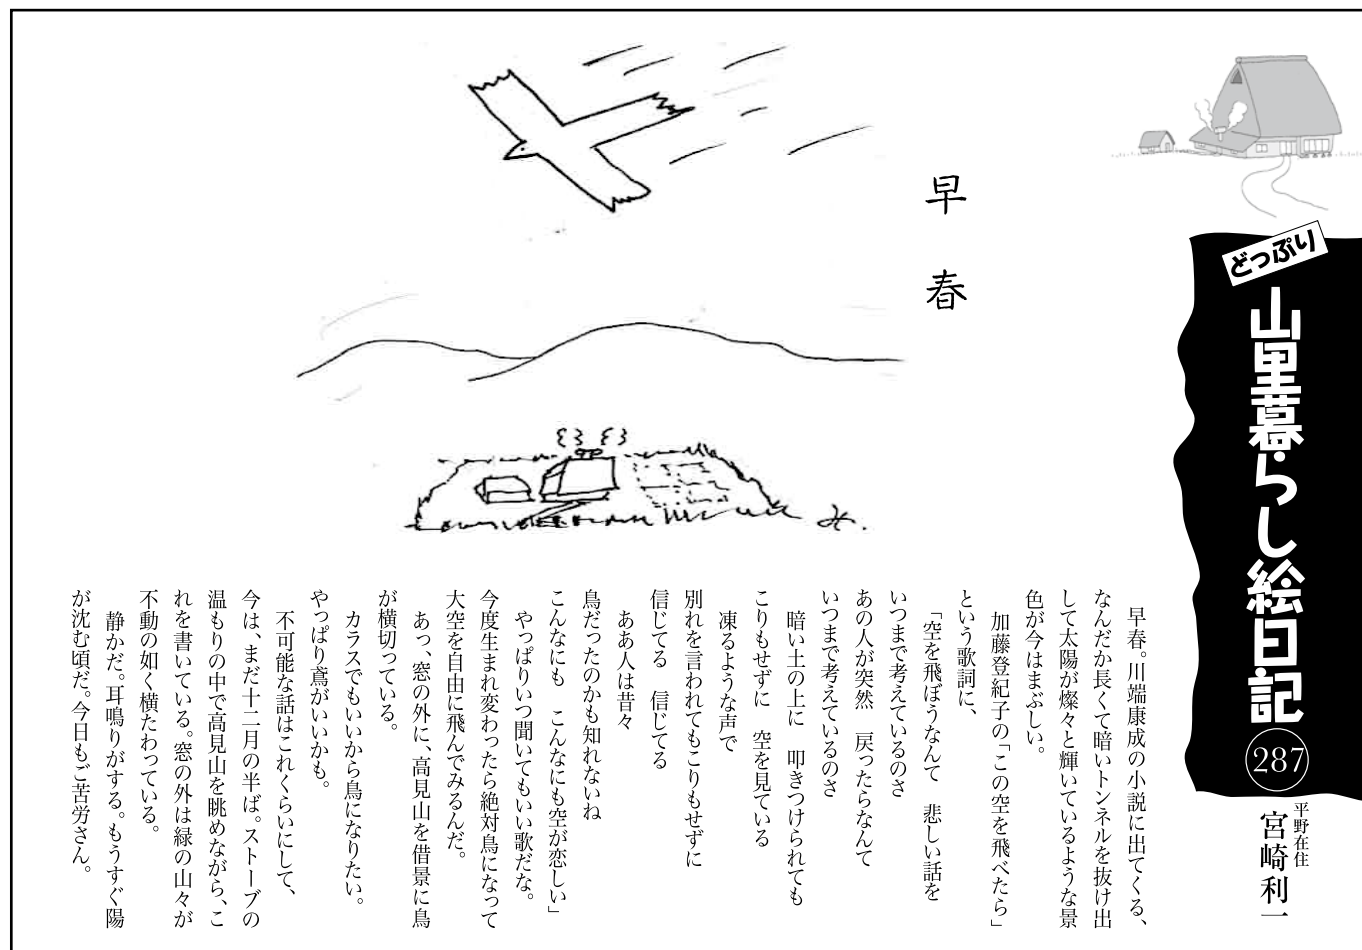 どっぷり
山里暮らし絵日記
287
平野在住
宮崎利一
早春
早春。川端康成の小説に出てくる、
なんだか長くて暗いトンネルを抜け出
して太陽が燦々と輝いているような景
色が今はまぶしい。
加藤登紀子の「この空を飛べたら」
という歌詞に、
「空を飛ぼうなんて　悲しい話を
いつまで考えているのさ
あの人が突然　戻ったらなんて
いつまで考えているのさ
暗い土の上に　叩きつけられても
こりもせずに　空を見ている
凍るような声で
別れを言われてもこりもせずに
信じてる　信じてる
ああ人は昔々
鳥だったのかも知れないね
こんなにも　こんなにも空が恋しい」
やっぱりいつ聞いてもいい歌だな。
今度生まれ変わったら絶対鳥になって
大空を自由に飛んでみるんだ。
あっ、窓の外に、高見山を借景に鳥
が横切っている。
カラスでもいいから鳥になりたい。
やっぱり鳶がいいかも。
不可能な話はこれくらいにして、
今は、まだ十二月の半ば。ストーブの
温もりの中で高見山を眺めながら、こ
れを書いている。窓の外は緑の山々が
不動の如く横たわっている。
静かだ。耳鳴りがする。もうすぐ陽
が沈む頃だ。今日もご苦労さん。